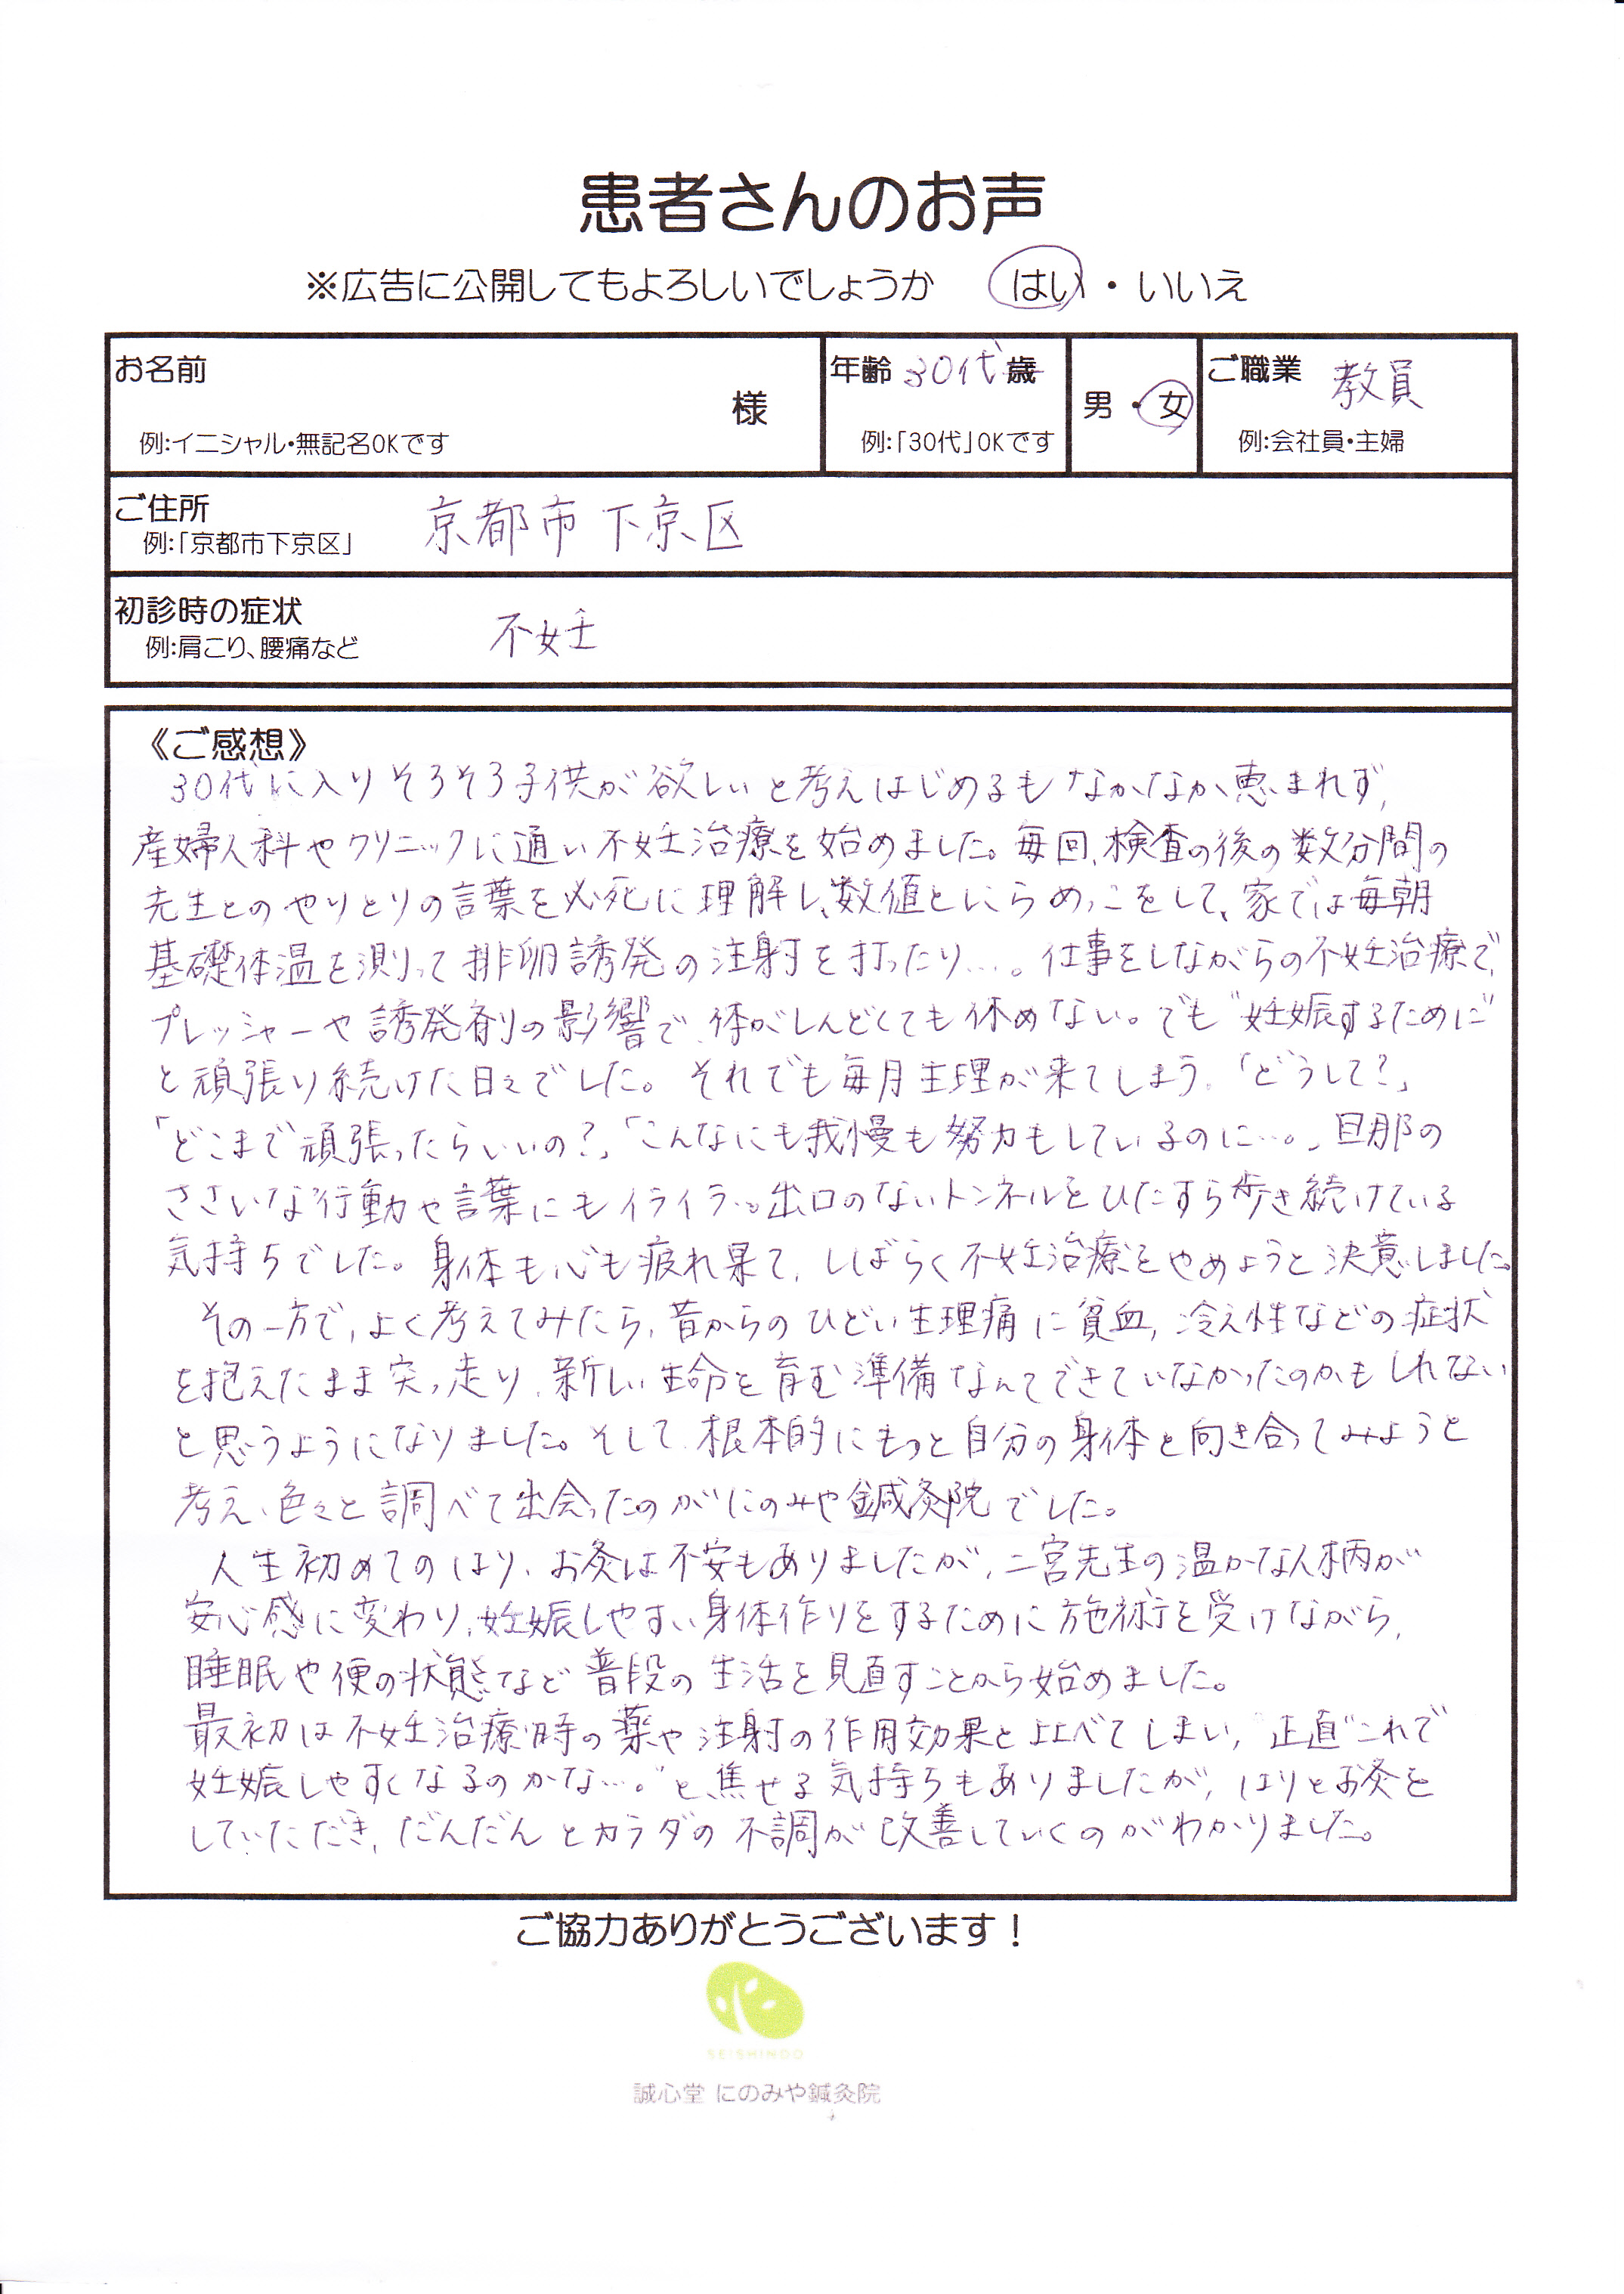 患者さんのお声
※広告に公開してもよろしいでしょうか はい・いいえ
お名前 様 年齢 30代 歳 男・女 ご職業 教員
例:イニシャル・無記名OKです 例:「30代」OKです 例:会社員・主婦
ご住所 京都市下京区
例:「京都市下京区」
初診時の症状 不妊
例:肩こり、腰痛など
《ご感想》
30代に入りそろそろ子供が欲しいと考えはじめるもなかなか恵まれず、
産婦人科やクリニックに通い不妊治療を始めました。毎回、検査の後の数分間の
先生とのやりとりの言葉を必死に理解し、数値とにらめっこをして、家では毎朝
基礎体温を測って排卵誘発の注射を打ったり…。仕事をしながらの不妊治療で、
プレッシャーや誘発剤の影響で、体がしんどくても休めない。でも“妊娠するために”
と頑張り続けた日々でした。それでも毎月生理が来てしまう。「どうして?」
「どこまで頑張ったらいいの?」「こんなにも我慢も努力もしているのに…。」旦那の
ささいな行動や言葉にもイライラ…。出口のないトンネルをひたすら歩き続けている
気持ちでした。身体も心も疲れ果て、しばらく不妊治療をやめようと決意しました。
その一方で、よく考えてみたら、昔からのひどい生理痛に貧血、冷え性などの症状
を抱えたまま突っ走り、新しい生命を育む準備なんてできていなかったのかもしれない
と思うようになりました。そして、根本的にもっと自分の身体と向き合ってみようと
考え、色々と調べて出会ったのがにのみや鍼灸院でした。
人生初めてのはり、お灸は不安もありましたが、二宮先生の温かな人柄が
安心感に変わり、妊娠しやすい身体作りをするために施術を受けながら、
睡眠や便の状態など普段の生活を見直すことから始めました。
最初は不妊治療時の薬や注射の作用効果と比べてしまい、正直“これで
妊娠しやすくなるのかな…。”と、焦せる気持ちもありましたが、はりとお灸を
していただき、だんだんとカラダの不調が改善していくのがわかりました。
ご協力ありがとうございます!
SEISHINDO
誠心堂 にのみや鍼灸院